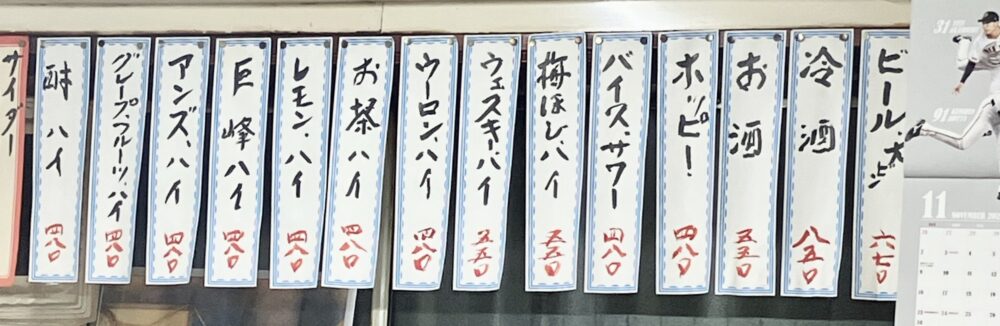 ビール、大ビン 六七〇
冷酒 八五〇
お酒 五五〇
ホッピー! 四八〇
バイス、サワー 四八〇
梅ぼし、ハイ 五五〇
ウェスキー、ハイ 五五〇
ウーロン、ハイ 四八〇
お茶ハイ 四八〇
レモン、ハイ 四八〇
巨峰ハイ 四八〇
アンズ、ハイ 四八〇
グレープ、フルーツ、ハイ 四八〇
酎ハイ 四八〇
サイダー
31
91
11 NOVEMBER